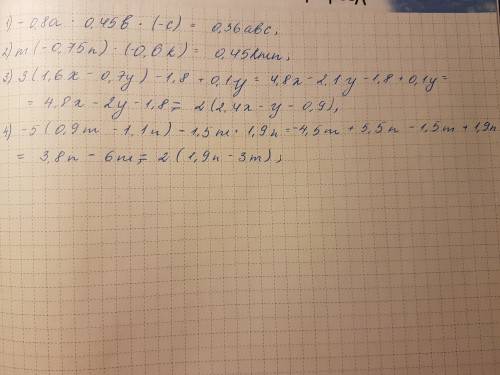 1) -0,8a · 0,45b · (-c) = 0,36abc,
2) m(-0,75n) · (-0,6k) = 0,45kmn,
3) 3(1,6x - 0,7y) - 1,8 + 0,1y = 4,8x - 2,1y - 1,8 + 0,1y =
= 4,8x - 2y - 1,8 = 2(2,4x - y - 0,9),
4) -5(0,9m - 1,1n) - 1,5m + 1,9n = -4,5m + 5,5n - 1,5m + 1,9n
= 3,8n - 6m = 2(1,9n - 3m),